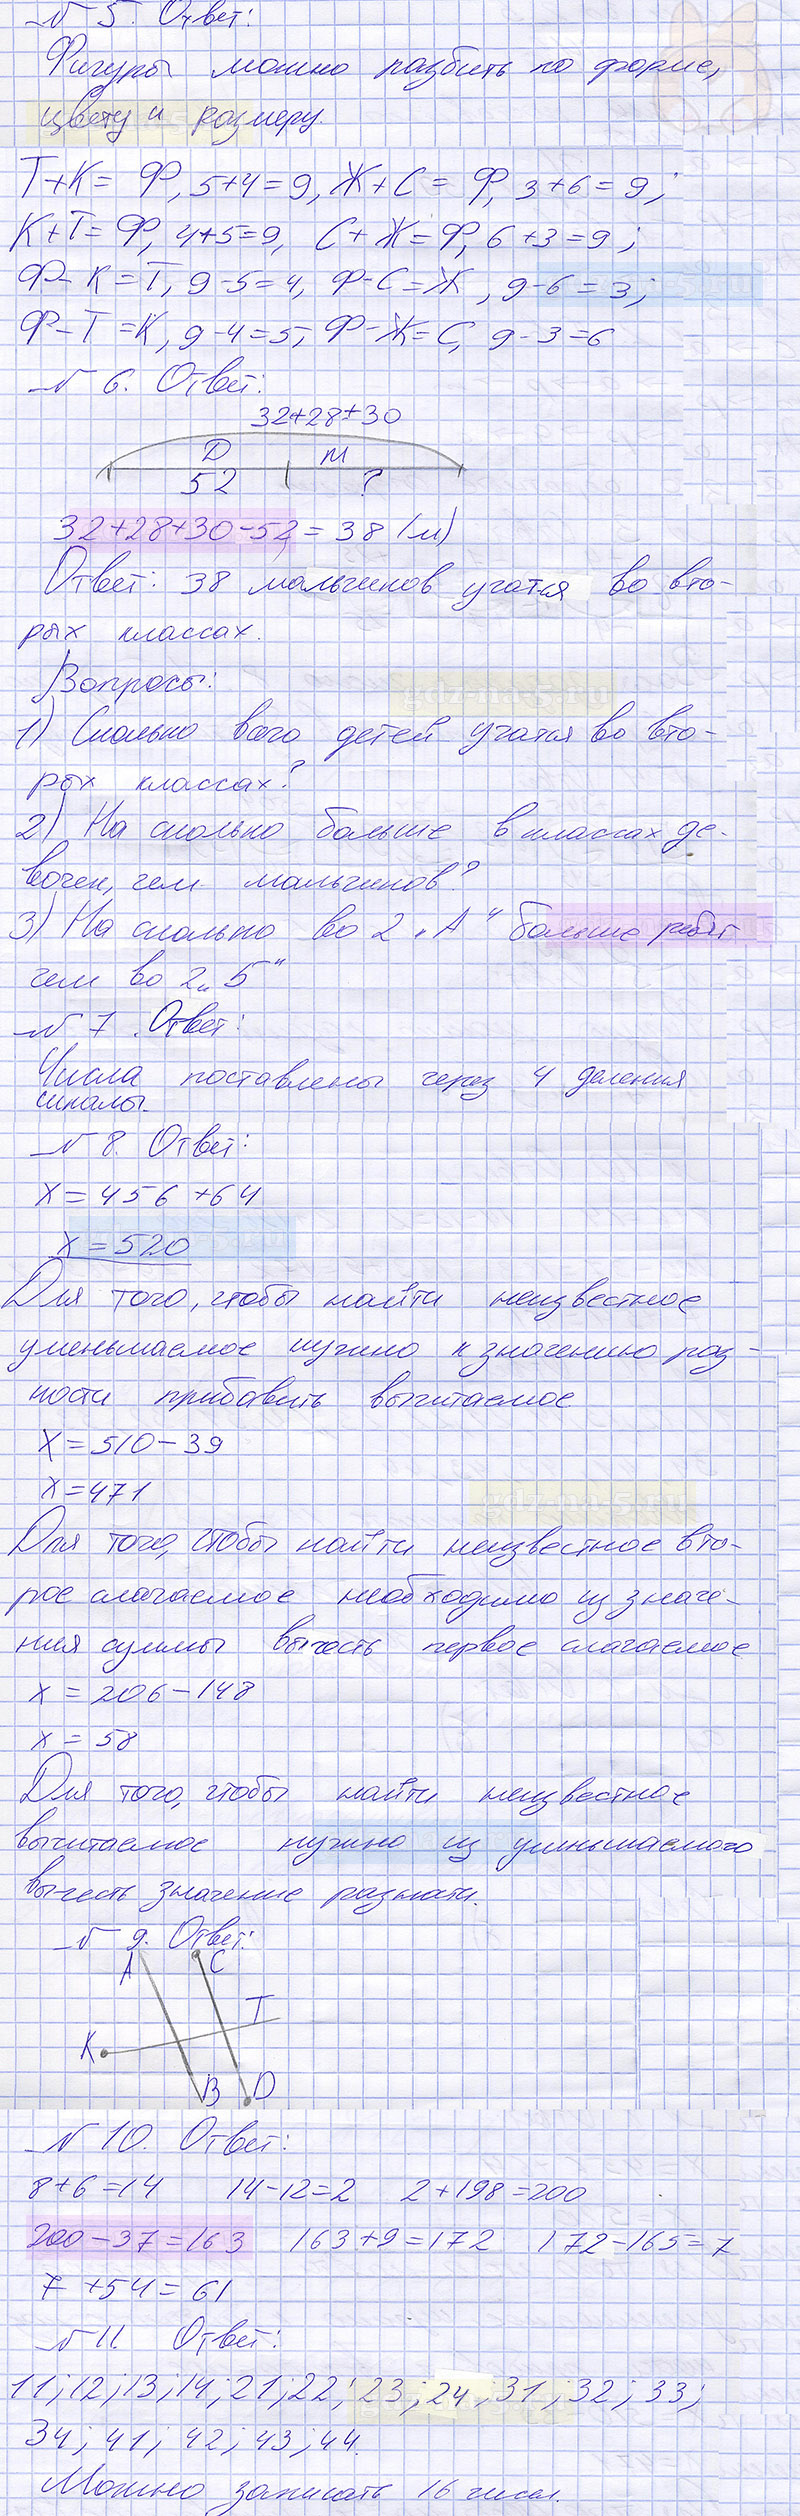 № 5. Ответ:
Фигуры можно разбить по форме,
цвету и размеру.
Т+К= Ф, 5+4=9, Ж+С= Ф, 3+6=9;
К+Т=Ф, 4+5=9, С+Ж=Ф, 6+3=9;
Ф-К=Т, 9-5=4, Ф-С=Ж, 9-6=3;
Ф-Т=К, 9-4=5, Ф-Ж=С, 9-3=6
№ 6. Ответ:
32+28+30
Д м
52 ?
32+28+30-52=38 (м)
Ответ: 38 мальчиков учатся во вто-
рых классах.
Вопросы:
1) Сколько всего детей учатся во вто-
рых классах?
2) На сколько больше в классах де-
вочек, чем мальчиков?
3) На сколько во 2 „А“ больше ребят
чем во 2 „Б“
№ 7. Ответ:
Числа поставлены через 4 деления
шкалы.
№ 8. Ответ:
х=456+64
х=520
Для того, чтобы найти неизвестное
уменьшаемое нужно к значению раз-
ности прибавить вычитаемое
х=510-39
х=471
gdz-na-5.ru
Для того, чтобы найти неизвестное вто-
рое слагаемое необходимо из значе-
ния суммы вычесть первое слагаемое
х=206-148
х=58
Для того, чтобы найти неизвестное
вычитаемое нужно из уменьшаемого
вычесть значение разности.
№ 9. Ответ:
А С
К Т
В D
№ 10. Ответ:
8+6=14 14-12=2 2+198=200
200-37=163 163+9=172 172-165=7
7+54=61
№ 11. Ответ:
11; 12; 13; 14; 21; 22; 23; 24; 31; 32; 33;
34; 41; 42; 43; 44.
Можно записать 16 чисел.